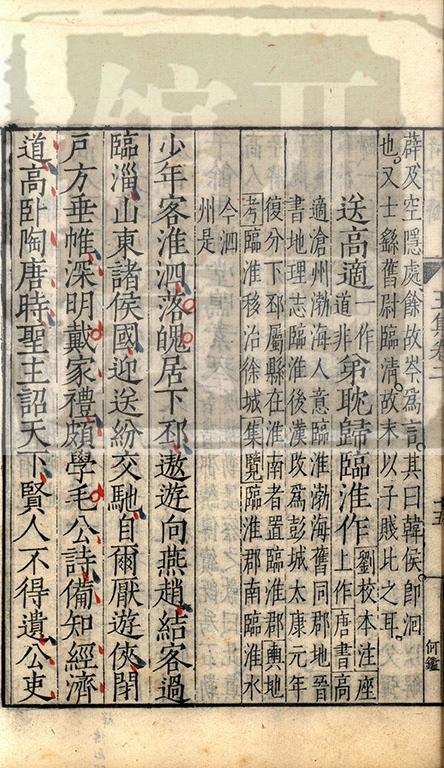 薜及空隱處餘故岑爲言其曰韓侯卽洄
也又士繇舊尉臨清故末以子賤比之耳
送高適一作道非弟耽歸臨淮作劉校本注座上作唐書高
適滄州渤海人意臨淮渤海舊同郡地晉
書地理志臨淮後漢攺爲彭城太康元年
復分下邳屬縣在淮南者置臨淮郡輿地
考臨淮移治徐城集覽臨淮郡南臨淮水
今泗
州是
少年客淮泗落魄居下邳遨遊向燕趙結客過
臨淄山東諸侯國迎送紛交馳自爾厭遊俠閉
戸方垂帷深明戴家禮頗學毛公詩備知經濟
道高臥陶唐時聖主詔天下賢人不得遺公吏
何鑑